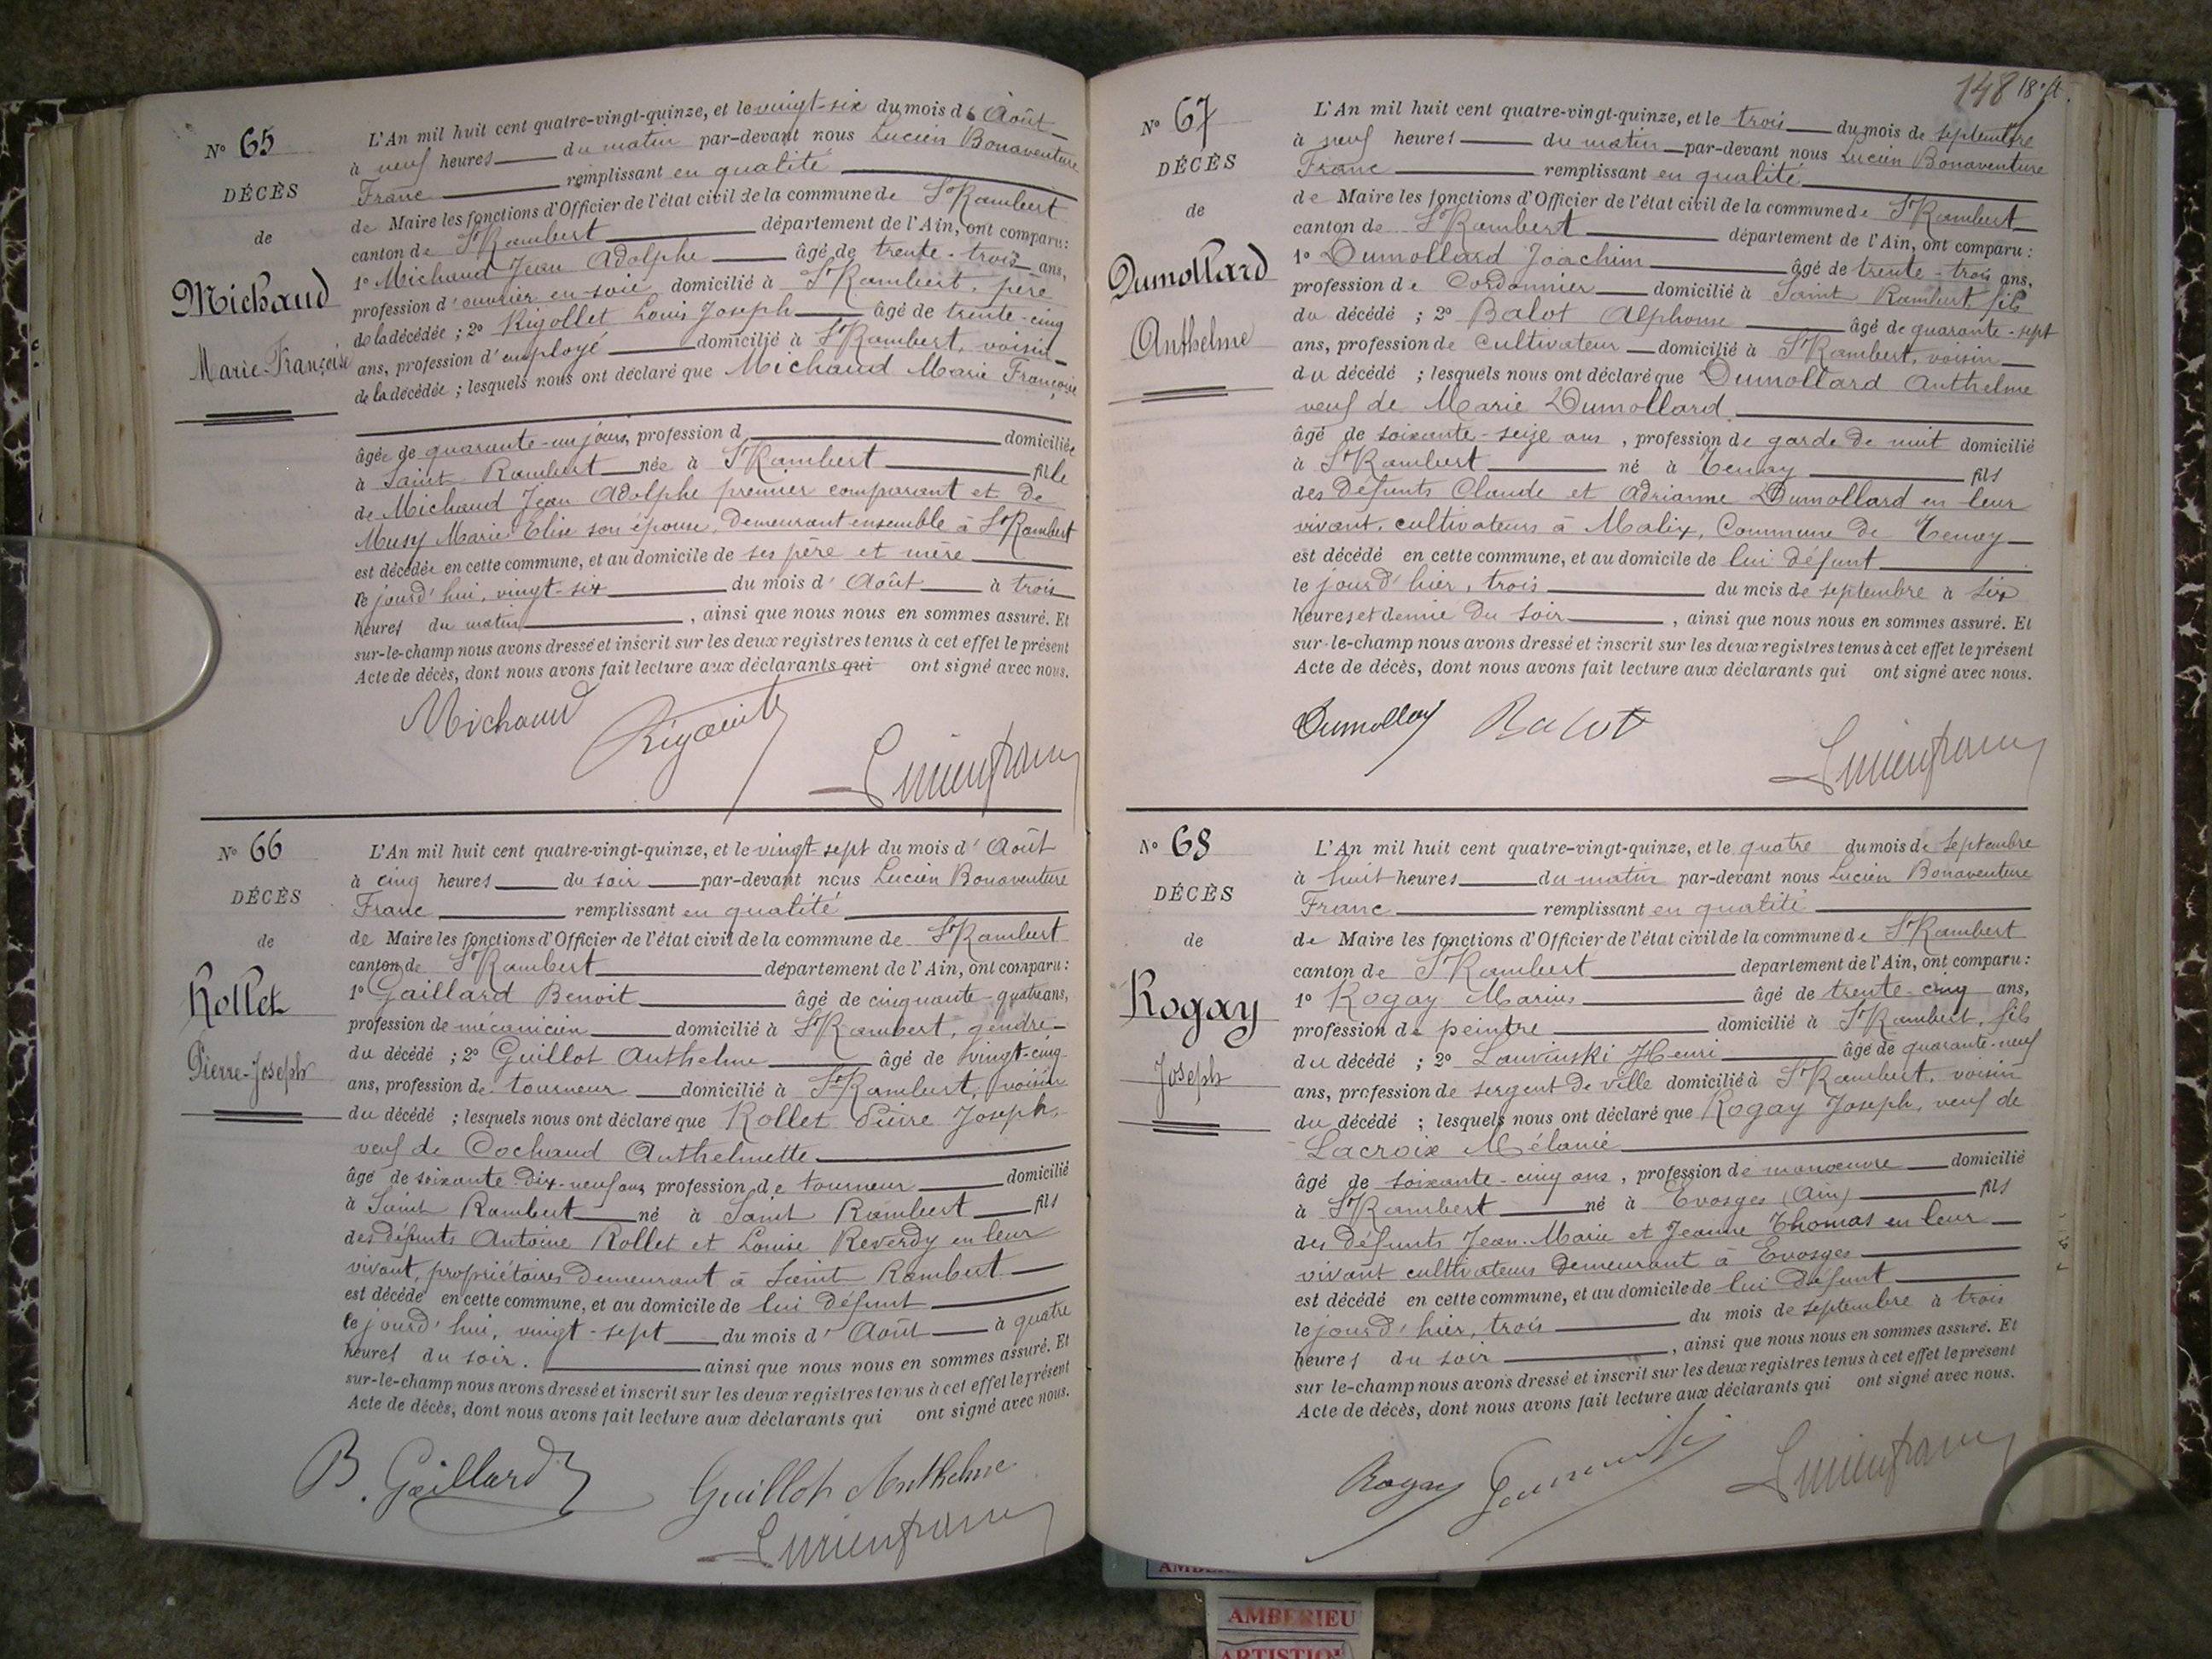 N° 65
DÉCÈS
de
Michaud
Marie-Françoise
L'An mil huit cent quatre-vingt-quinze, et le vingt-six du mois d'Août
à neuf heures du matin par-devant nous Lucien Bonaventure
Franc remplissant en qualité
de Maire les fonctions d'Officier de l'état civil de la commune de St Rambert
canton de St Rambert département de l'Ain, ont comparu:
1° Michaud Jean Adolphe âgé de trente-trois ans,
profession d'ouvrier en soie domicilié à St Rambert, père
de la décédée ; 2° Rigollet Louis Joseph âgé de trente-cinq
ans, profession d'employé domicilié à St Rambert, voisin
de la décédée ; lesquels nous ont déclaré que Michaud Marie Françoise
âgée de quarante-un jours, profession d domiciliée
à Saint Rambert née à St Rambert fille
de Michaud Jean Adolphe premier comparant et de
Musy Marie Elise son épouse, demeurant ensemble à St Rambert
est décédée en cette commune, et au domicile de ses père et mère
le jourd'hui, vingt-six du mois d'Août à trois
heures du matin, ainsi que nous nous en sommes assuré. Et
sur-le-champ nous avons dressé et inscrit sur les deux registres tenus à cet effet le présent
Acte de décès, dont nous avons fait lecture aux déclarants qui ont signé avec nous.
Michaud
Lucien franc
N° 66
DÉCÈS
de
Rollet
Pierre-Joseph
L'An mil huit cent quatre-vingt-quinze, et le vingt sept du mois d'Août
à cinq heures du soir par-devant nous Lucien Bonaventure
Franc remplissant en qualité
de Maire les fonctions d'Officier de l'état civil de la commune de St Rambert
canton de St Rambert département de l'Ain, ont comparu:
1° Gaillard Benoit âgé de cinquante-quatre ans,
profession de mécanicien domicilié à St Rambert, gendre
du décédé ; 2° Guillot Anthelme âgé de vingt-cinq
ans, profession de tourneur domicilié à St Rambert, voisin
du décédé ; lesquels nous ont déclaré que Rollet Pierre Joseph,
veuf de Cochaud Anthelmette
âgé de soixante dix-neuf ans profession de tourneur domicilié
à Saint Rambert né à Saint Rambert fils
des défunts Antoine Rollet et Louise Reverdy en leur
vivant, propriétaires demeurant à Saint Rambert
est décédé en cette commune, et au domicile de lui défunt
le jourd'hui, vingt-sept du mois d'Août à quatre
heures du soir. ainsi que nous nous en sommes assuré. Et
sur-le-champ nous avons dressé et inscrit sur les deux registres tenus à cet effet le présent
Acte de décès, dont nous avons fait lecture aux déclarants qui ont signé avec nous.
B. Gaillard Guillot Anthelme
Lucien franc
148
N° 67
DÉCÈS
de
Dumollard
Anthelme
L'An mil huit cent quatre-vingt-quinze, et le trois du mois de septembre
à neuf heures du matin par-devant nous Lucien Bonaventure
Franc remplissant en qualité
de Maire les fonctions d'Officier de l'état civil de la commune de St Rambert
canton de St Rambert département de l'Ain, ont comparu:
1° Dumollard Joachim âgé de trente-trois ans,
profession de Cordonnier domicilié à Saint Rambert fils
du décédé ; 2° Balot Alphonse âgé de quarante-sept
ans, profession de cultivateur domicilié à St Rambert, voisin
du décédé ; lesquels nous ont déclaré que Dumollard Anthelme
veuf de Marie Dumollard
âgé de soixante-seize ans, profession de garde de nuit domicilié
à St Rambert né à Tenay fils
des défunts Claude et Adrianne Dumollard en leur
vivant, cultivateurs à Malix, Commune de Tenay
est décédé en cette commune, et au domicile de lui défunt
le jourd'hier, trois du mois de septembre à six
heures et demie du soir, ainsi que nous nous en sommes assuré. Et
sur-le-champ nous avons dressé et inscrit sur les deux registres tenus à cet effet le présent
Acte de décès, dont nous avons fait lecture aux déclarants qui ont signé avec nous.
Balot
Lucien franc
N° 68
DÉCÈS
de
Rogay
Joseph
L'An mil huit cent quatre-vingt-quinze, et le quatre du mois de septembre
à huit heures du matin par-devant nous Lucien Bonaventure
Franc remplissant en qualité
de Maire les fonctions d'Officier de l'état civil de la commune de St Rambert
canton de St Rambert département de l'Ain, ont comparu:
1° Rogay Marius âgé de trente-cinq ans,
profession de peintre domicilié à St Rambert, fils
du décédé ; 2° Lauvinski Henri âgé de quarante-neuf
ans, profession de sergent de ville domicilié à St Rambert, voisin
du décédé ; lesquels nous ont déclaré que Rogay Joseph, veuf de
Lacroix Mélanie
âgé de soixante-cinq ans, profession de manœuvre domicilié
à St Rambert né à Evosges (Ain) fils
des défunts Jean-Marie et Jeanne Thomas en leur
vivant cultivateurs demeurant à Evosges
est décédé en cette commune, et au domicile de lui défunt
le jourd'hier, trois du mois de septembre à trois
heures du soir, ainsi que nous nous en sommes assuré. Et
sur le-champ nous avons dressé et inscrit sur les deux registres tenus à cet effet le présent
Acte de décès, dont nous avons fait lecture aux déclarants qui ont signé avec nous.
Rogay
Lucien franc
AMBERIEU